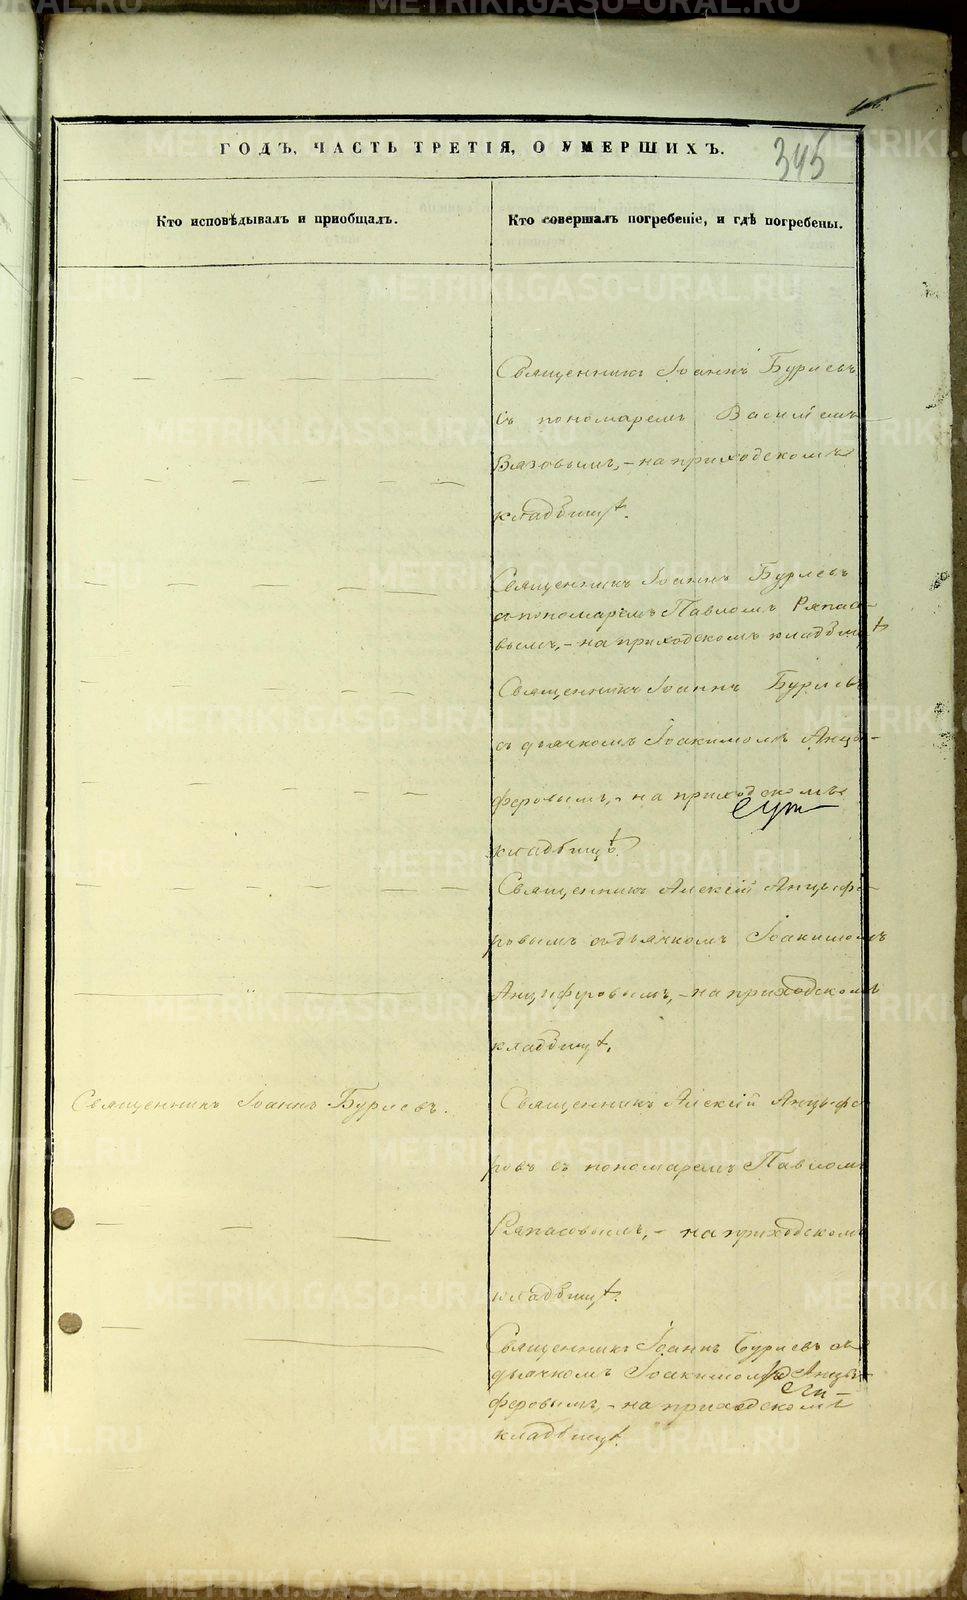 345
ГОДЪ, ЧАСТЬ ТРЕТІЯ, О УМЕРШИХЪ.
Кто исповѣдывалъ и приобщалъ.
Кто совершалъ погребеніе, и гдѣ погребены.
Священникъ Іоаннъ Бурлевъ
съ пономаремъ Василіемъ
Вязовымъ, - на приходскомъ
кладбищѣ.
Священникъ Іоаннъ Бурлевъ
съ пономаремъ Павломъ Ряпасо-
вымъ, - на приходскомъ кладбищѣ
Священникъ Іоаннъ Бурлевъ
съ дьячкомъ Іоакимомъ Анцы-
феровымъ, - на приходскомъ
кладбищѣ.
Священникъ Алексій Анцыфе-
ровымъ съ дьячкомъ Іоакимомъ
Анцыферовымъ, - на приходскомъ
кладбищѣ.
Священникъ Іоаннъ Бурлевъ.
Священникъ Алексій Анцыфе-
ровъ съ пономаремъ Павломъ
Ряпасовымъ, - на приходскомъ
кладбищѣ.
Священникъ Іоаннъ Бурлевъ съ
дьячкомъ Іоакимомъ Анцы-
феровымъ, - на приходскомъ
кладбищѣ.
METRIKI.GASO-URAL.RU